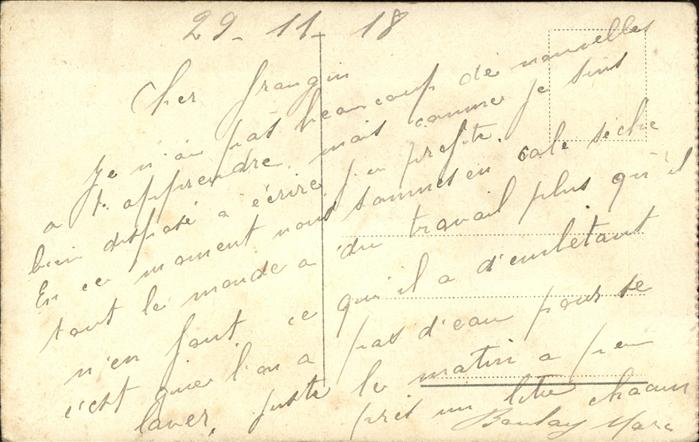 29-11-18
Cher frangin
Je n'ai pas beaucoup de nouvelles
a t'apprendre, mais comme je suis
bien disposé a écrire j'en profite.
En ce moment nous sommes en cale sèche
tout le monde a du travail plus qu'il
n'en faut, ce qu'il a d'embêtant
c'est que l'on a pas d'eau pour se
laver, juste le matin a peu
près un litre chacun
Boulay Marc